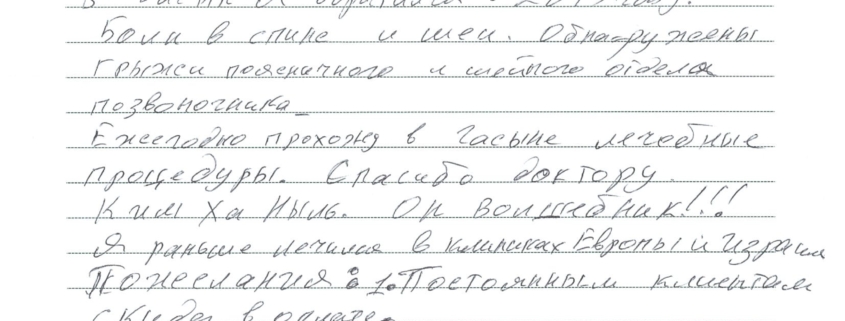 в 2017 году.
Боли в спине и шеи. Обнаружены
грыжи поясничного и шейного отдела
позвоночника
Ежегодно прохожу в Часыне лечебные
процедуры. Спасибо доктору
Ким Ха Ныль. Он волшебник!!!
Я раньше лечился в клиниках Европы и Израиля
Пожелания: 1. Постоянным клиентам
скидку в оплате.